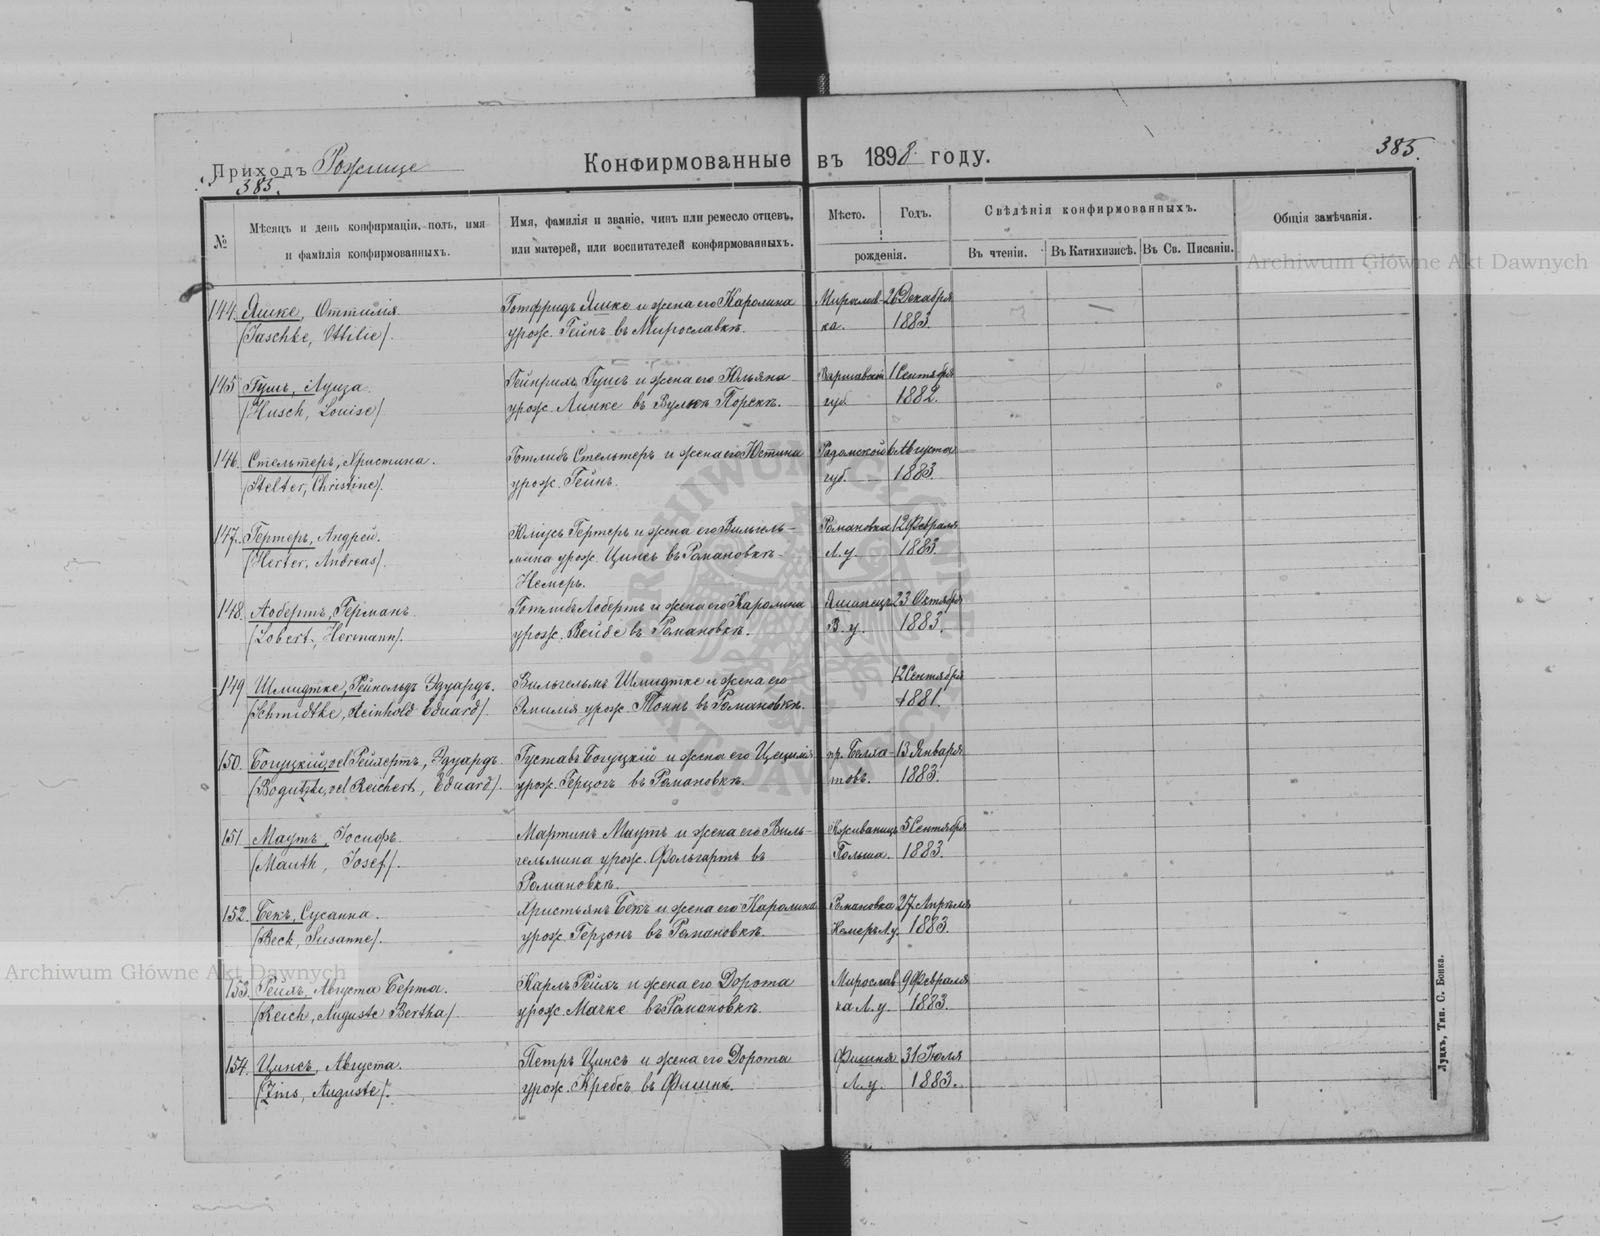 Приходъ Рожище
Конфирмованные въ 1898 году.
385.
385.
№
Мѣсяцъ и день конфирмаціи, полъ, имя
и фамилія конфирмованныхъ.
Имя, фамилія и званіе, чинъ или ремесло отцевъ,
или матерей, или воспитателей конфирмованныхъ.
Мѣсто.
Годъ.
рожденія.
Свѣдѣнія конфирмованныхъ.
Въ чтеніи.
Въ Катихизисѣ.
Въ Св. Писаніи.
Общія замѣчанія.
144. Яшке, Оттилія Готфридъ Яшке и жена его Каролина Мирослав- 26 Декабря
(Jaschke, Ottilie). урож. Гейнъ въ Мирославкѣ. ка. 1883.
145 Гушъ, Луиза. Гейнрихъ Гушъ и жена его Юльяна Варшавской 1 Сентября
(Husch, Louise) урож. Линке въ Вулькѣ Порскѣ. губ. 1882.
146. Стельтеръ, Христина. Готлибъ Стельтеръ и жена его Юстина Радомской 6 Августа
(Stelter, Christine). урож. Гейнъ. губ. 1883.
147. Гертеръ, Андрей. Юліусъ Гертеръ и жена его Вильгель- Романовка 12 Февраля
(Herter, Andreas). мина урож. Цинсъ въ Романовкѣ- Л. у. 1883.
Немеръ.
148. Лобертъ, Германъ Готлибъ Лобертъ и жена его Каролина 23 Октября
(Lobert, Hermann). урож. Вейде въ Романовкѣ. В. у. 1883.
149 Шмидтке, Рейнольдъ Эдуардъ. Вильгельмъ Шмидтке и жена его 12 Сентября
(Schmidtke, Reinhold Eduard). Эмилія урож. Тоннъ въ Романовкѣ. 1881.
150. Богуцкій vel Рейхертъ, Эдуардъ. Густавъ Богуцкій и жена его Цецилія пр. Белха- 13 Января
(Bogutzki, vel Reichert, Eduard). урож. Герцогъ въ Романовкѣ. товъ. 1883.
151. Маутъ, Іосифъ. Мартинъ Маутъ и жена его Виль- 5 Сентября
(Mauth, Josef). гельмина урож. Фольгартъ въ Польша. 1883.
Романовкѣ.
152. Бекъ, Сусанна. Христьянъ Бекъ и жена его Каролина Романовка 27 Апрѣля
(Beck, Susanne). урож. Герзонъ въ Романовкѣ. Немеръ Л.у. 1883.
153. Рейхъ, Августа Берта. Карлъ Рейхъ и жена его Дорота Мирослав 9 Февраля
(Reich, Auguste Bertha) урож. Мачке въ Романовкѣ. ка Л. у. 1883.
154. Цинсъ, Августа. Петръ Цинсъ и жена его Дорота 31 Іюля
(Zins, Auguste). урож. Кребсъ въ Л. у. 1883.
Луцкъ, Тип. С. Бонка.
Archiwum Główne Akt Dawnych
Archiwum Główne Akt Dawnych
ARCHIWUM GŁÓWNE AKT DAWNYCH